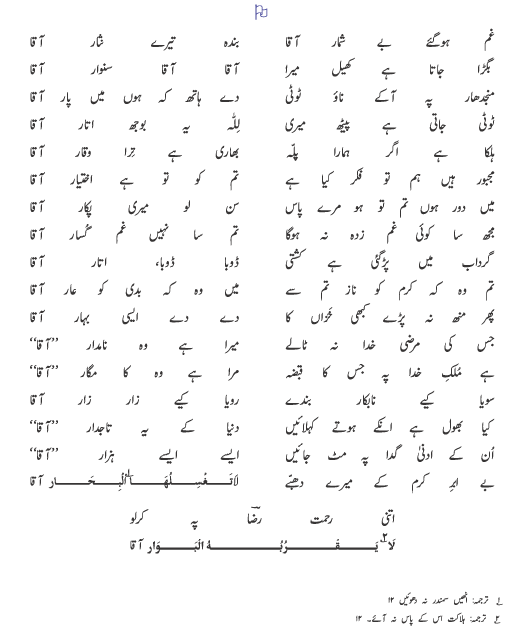 غم ہوگئے بے شمار آقا
بندہ تیرے نثار آقا
بگڑا جاتا ہے کھیل میرا
آقا آقا سنوار آقا
منجدھار پہ آکے ناؤ ٹوٹی
دے ہاتھ کہ ہوں میں پار آقا
ٹوٹی جاتی ہے پیٹھ میری
لِلّٰہ یہ بوجھ اتار آقا
ہلکا ہے اگر ہمارا پلّہ
بھاری ہے تِرا وقار آقا
مجبور ہیں ہم تو فکر کیا ہے
تم کو تو ہے اختیار آقا
میں دور ہوں تم تو ہو مرے پاس
سن لو میری پکار آقا
مجھ سا کوئی غم زدہ نہ ہوگا
تم سا نہیں غم گُسار آقا
گرداب میں پڑگئی ہے کشتی
ڈوبا ڈوبا، اتار آقا
تم وہ کہ کرم کو ناز تم سے
میں وہ کہ بدی کو عار آقا
پھر منھ نہ پڑے کبھی خزاں کا
دے دے ایسی بہار آقا
جس کی مرضی خدا نہ ٹالے
میرا ہے وہ نامدار ”آقا“
ہے مُلکِ خدا پہ جس کا قبضہ
مرا ہے وہ کا مگار ”آقا“
سویا کیے نابکار بندے
رویا کیے زار زار آقا
کیا بھول ہے انکے ہوتے کہلائیں
دنیا کے یہ تاجدار ”آقا“
اُن کے ادنیٰ گدا پہ مٹ جائیں
ایسے ایسے ہزار ”آقا“
بے ابرِ کرم کے میرے دھبّے
لَاتَغْسِلُھَا۱ الْبِحَار آقا
اتنی رحمت رضاؔ پہ کرلو
لَا۲ یَقْرُبُہُ الْبَوَار آقا
۱؎ ترجمہ: انھیں سمندر نہ دھوئیں ۱۲
۲؎ ترجمہ: ہلاکت اس کے پاس نہ آئے۔ ۱۲